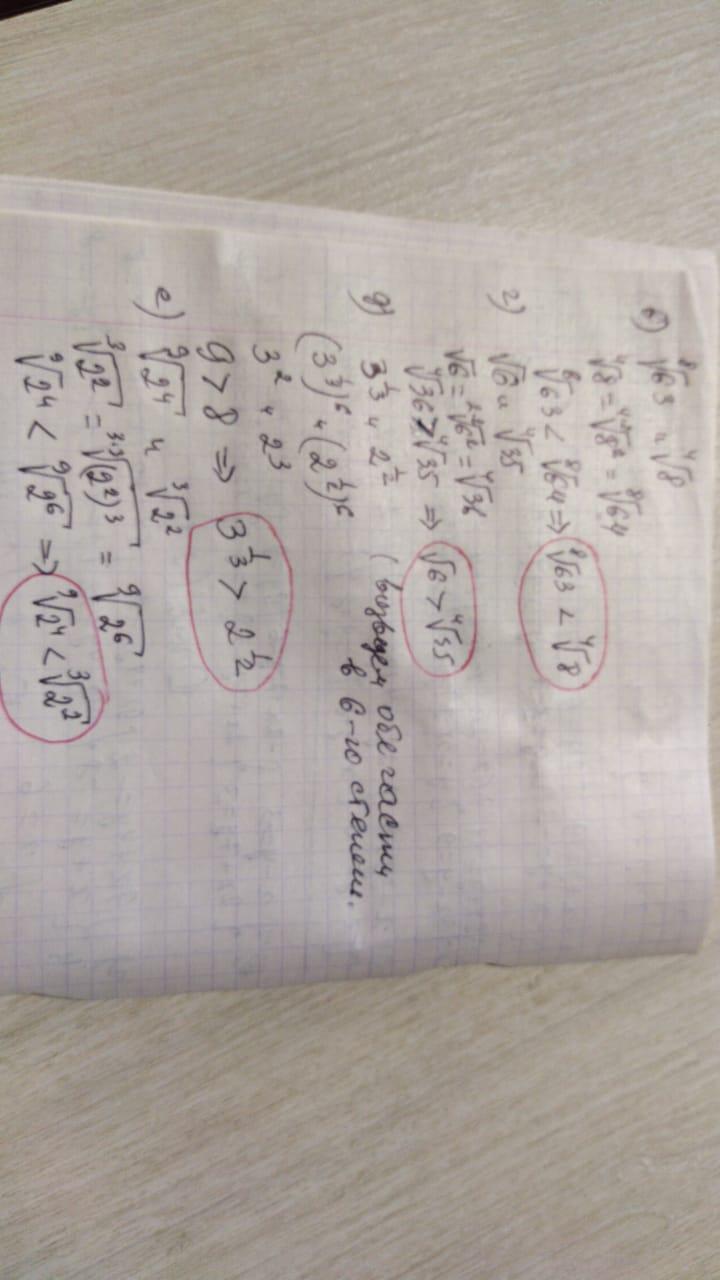 в) ⁸√63 и ⁴√8
⁴√8 = ⁴·²√8² = ⁸√64
⁸√63 < ⁸√64 ⇒ ⁸√63 < ⁴√8
г) √6 и ⁴√35
√6 = ²·²√6² = ⁴√36
⁴√36 > ⁴√35 ⇒ √6 > ⁴√35
д) 3^(1/3) и 2^(1/2) (возведем обе части
в 6-ю степень.
(3^(1/3))⁶ и (2^(1/2))⁶
3² и 2³
9 > 8 ⇒ 3^(1/3) > 2^(1/2)
е) ⁹√2⁴ и ³√2²
³√2² = ³·³√(2²)³ = ⁹√2⁶
⁹√2⁴ < ⁹√2⁶ ⇒ ⁹√2⁴ < ³√2²